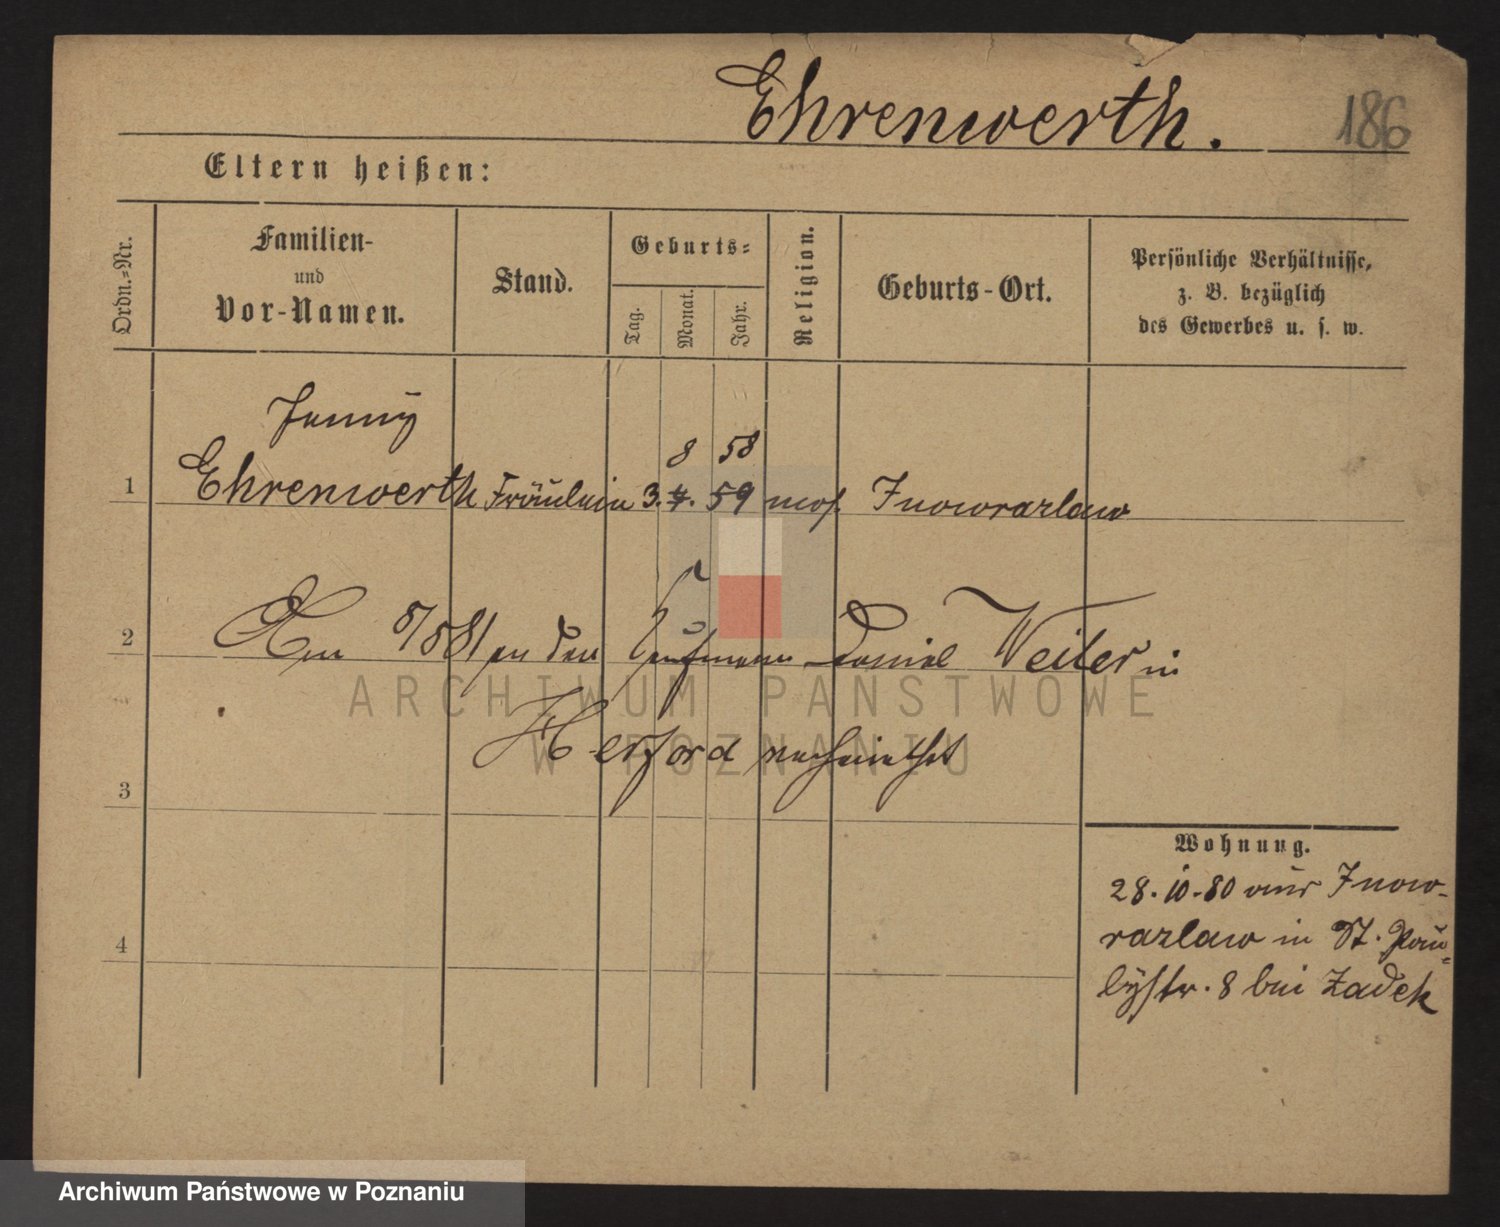 Ehrenwerth. 186
Eltern heißen:
Ordn.-Nr.
Familien-
und
Vor-Namen.
Stand.
Geburts-
Tag.
Monat.
Jahr.
Religion.
Geburts-Ort.
Persönliche Verhältnisse,
z. B. bezüglich
des Gewerbes u. s. w.
Jenny
8 58
1 Ehrenwerth Fräulein 3. 4. 59 mos. Inowrazlaw
2 Am 8/5 81 an den Kaufmann Daniel Weiler in
Herford verheirathet
3
4
Wohnung.
28.10.80 aus Inow-
razlaw in St. Pau-
listr. 8 bei Zadek
ARCHIWUM PAŃSTWOWE
W POZNANIU
Archiwum Państwowe w Poznaniu